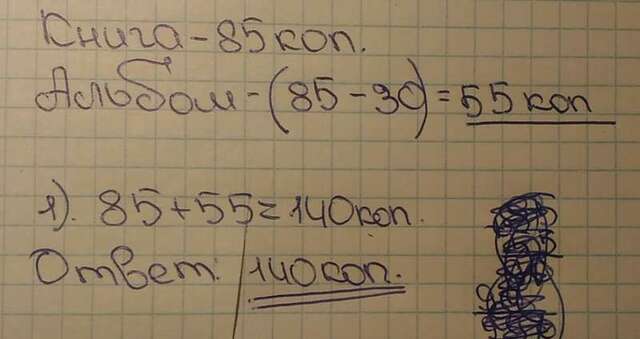 Книга - 85 коп.
Альбом - (85 - 30) = 55 коп
1). 85 + 55 = 140 коп.
Ответ: 140 коп.